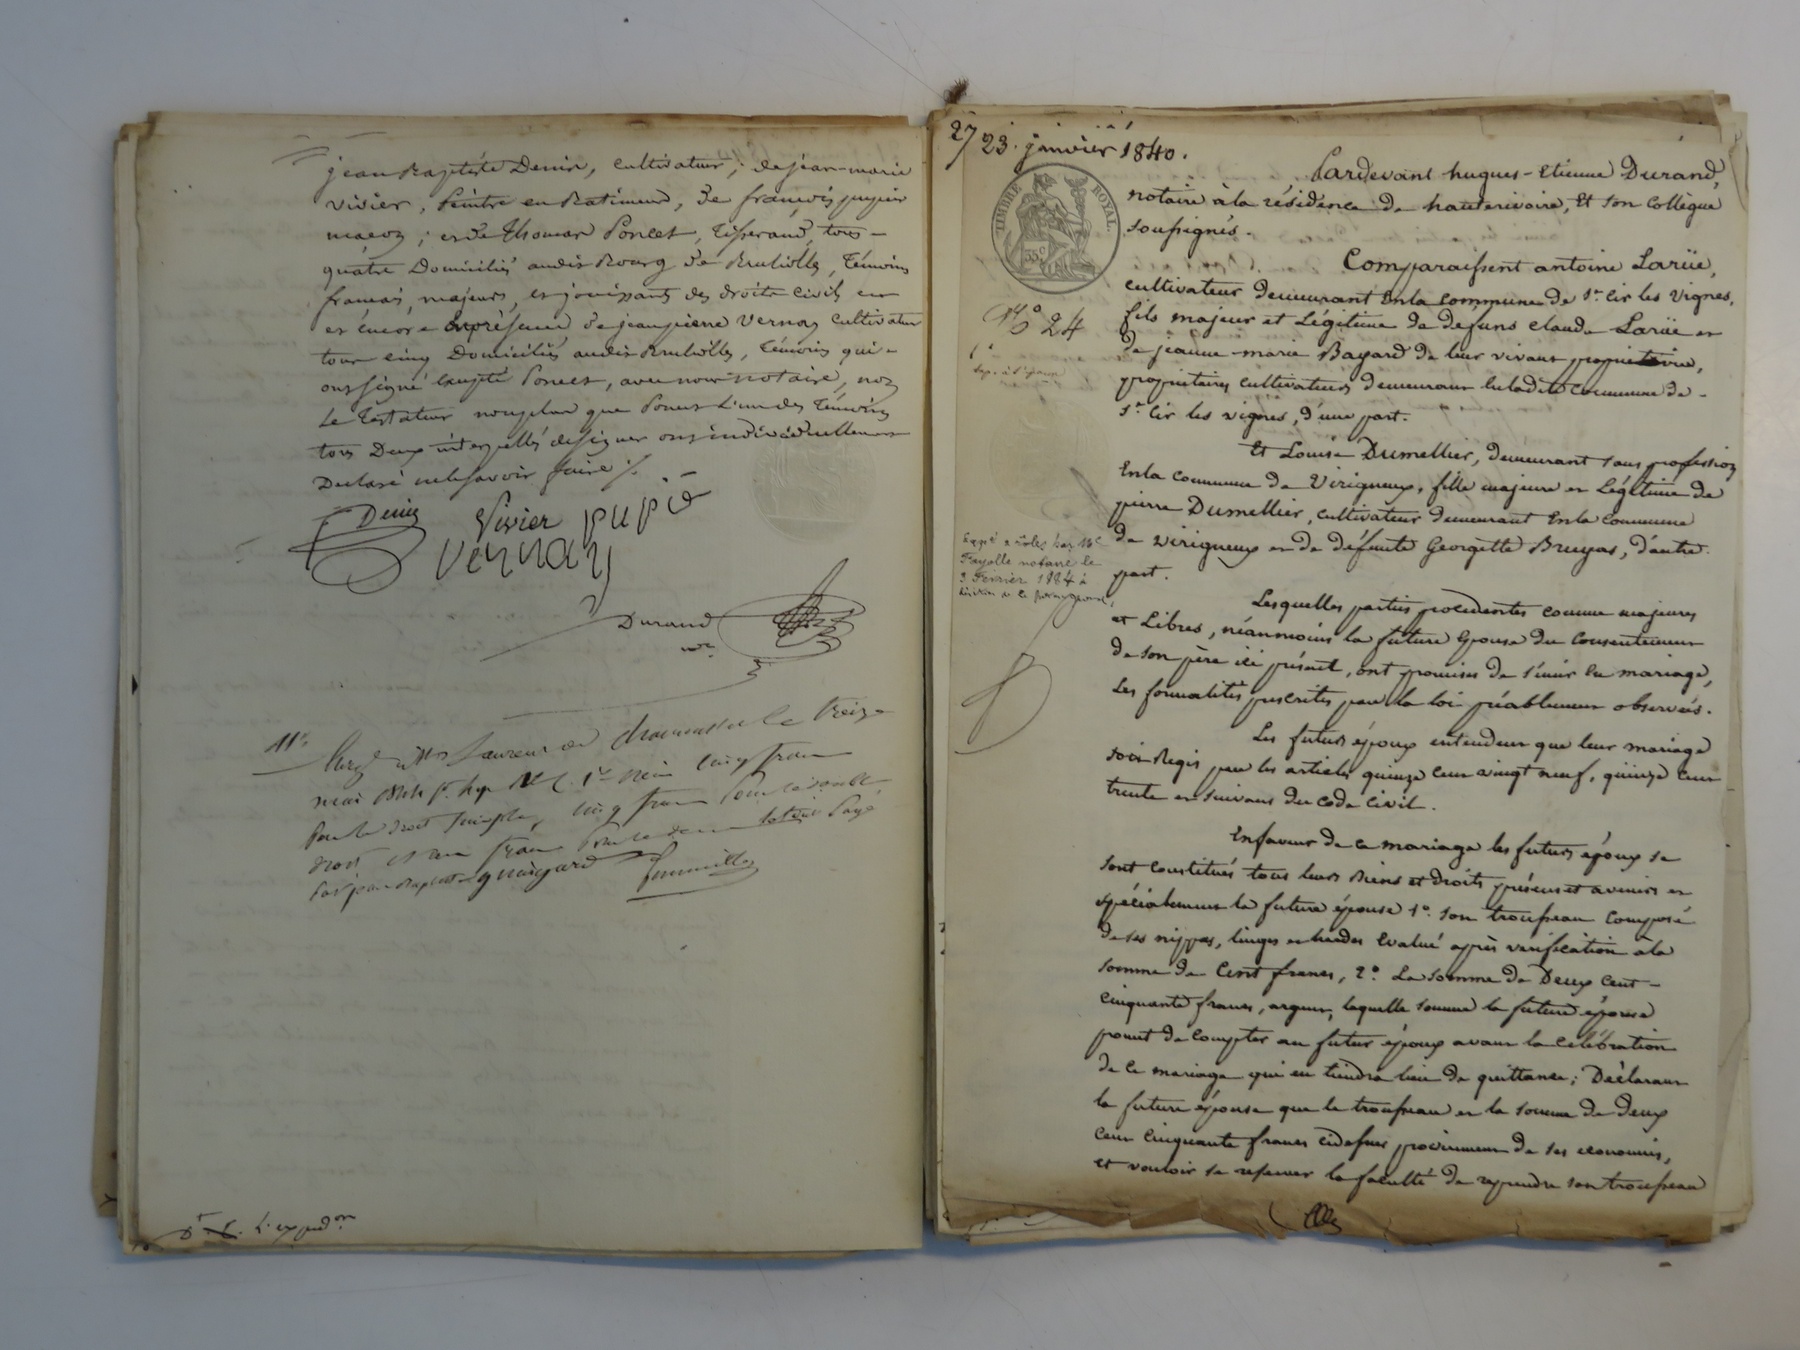 jean Baptiste Denis, cultivateur; de jean-marie
vivier, peintre en Batiment, de françois pupier
maçon; et de Thomas Poncet, Tisserand, tous
quatre Domiciliés audit Bourg de Rullioles, Témoins
francais, majeurs, et jouissants des droits civils en
et encore en présence de jean pierre Vernay cultivateur
tous cinq Domiciliés audit, Témoins qui
ont signé excepté Poncet, avec nous notaire, non
Le Testateur non plus que Poncet L'un des Témoins
tous Deux interpellés de signer ont individuellement
Déclaré ne le savoir faire ./.
Denis Vivier pupié
Vernay
Durand
nre.
treize
mai cinq francs
pour le droit simple, cinq francs pour le double
droit et un franc pour le
par jean Baptiste guingard
Dt L'expedon
27 23 janvier 1840.
TIMBRE ROYAL.
35c
No 24
Pardevant hugues-Etienne Durand,
notaire à la résidence de hauterivoire, Et son Collègue
soussignés.
Comparaissent antoine Larüe,
cultivateur demeurant En la commune de St Cir les Vignes,
fils majeur et Légitime de defunts claude Larüe et
de jeanne-marie Bayard de leur vivant propriétaire,
propriétaires cultivateurs demeurant En ladite Commune de
St Cir les vignes, d'une part.
Et Louise Dumellier, demeurant sans profession
En la commune de Virigneux, fille majeure et Légitime de
pierre Dumellier, cultivateur demeurant En la Commune
de virigneux et de défunte Georgette Bruyas, d'autre
part.
Fayolle notaire le
3 Fevrier 1884 à
Lesquelles parties procédantes comme majeures
et Libres, néanmoins la future Epouse du Consentement
de son père ici présent, ont promises de s'unir en mariage,
Les formalités prescrites par la loi préablement observées.
Les futurs époux entendent que leur mariage
soit Régis par les articles quinze cent vingt neuf, quinze cent
trente et suivans du code Civil.
En faveur de ce mariage les futurs époux se
sont constitués tous leurs Biens et Droits présens et avenirs et
spécialement la future épouse 1o. son trousseau Composé
de ses nippes, linges et hardes Evalué après vérification à la
somme de Cent francs, 2o. La somme de Deux Cent
Cinquante francs, argent, laquelle somme la future épouse
promet de Compter au futur époux avant la Célébration
de Ce mariage qui en tiendra lieu de quittance; Déclarant
la future épouse que le trousseau et la somme de Deux
Cent Cinquante francs cidessus proviennent de ses economies,
et vouloir se reserver la faculté de reprendre son trousseau